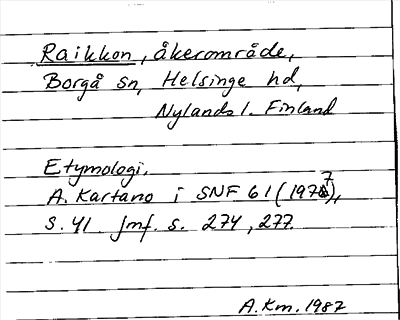 Raikkon, åkerområde,
Borgå sn, Helsinge hd,
Nylands l. Finland
Etymologi.
A. Kartano i SNF 61 (1977),
s. 41. Jmf. s. 274, 277.
A.Km. 1987